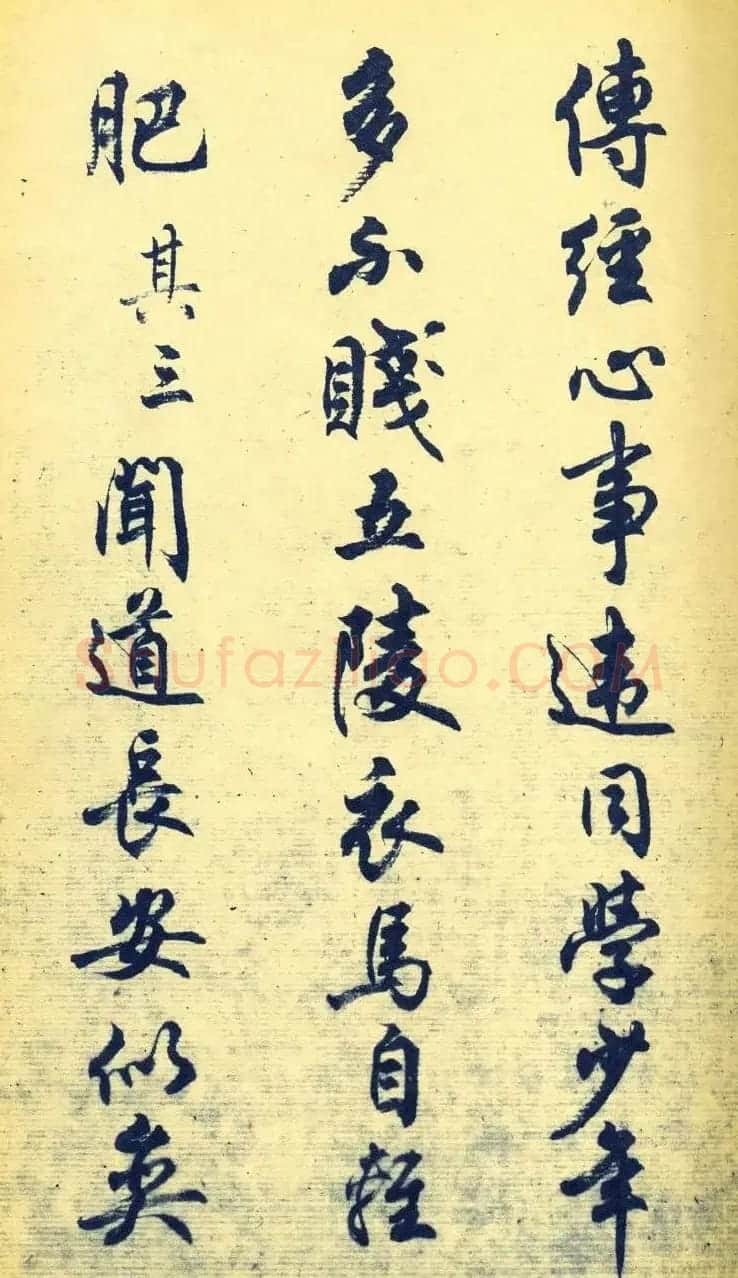 傳經心事違同學少年
多不賤五陵衣馬自輕
肥 其三 聞道長安似奕
Shufaziliao.COM